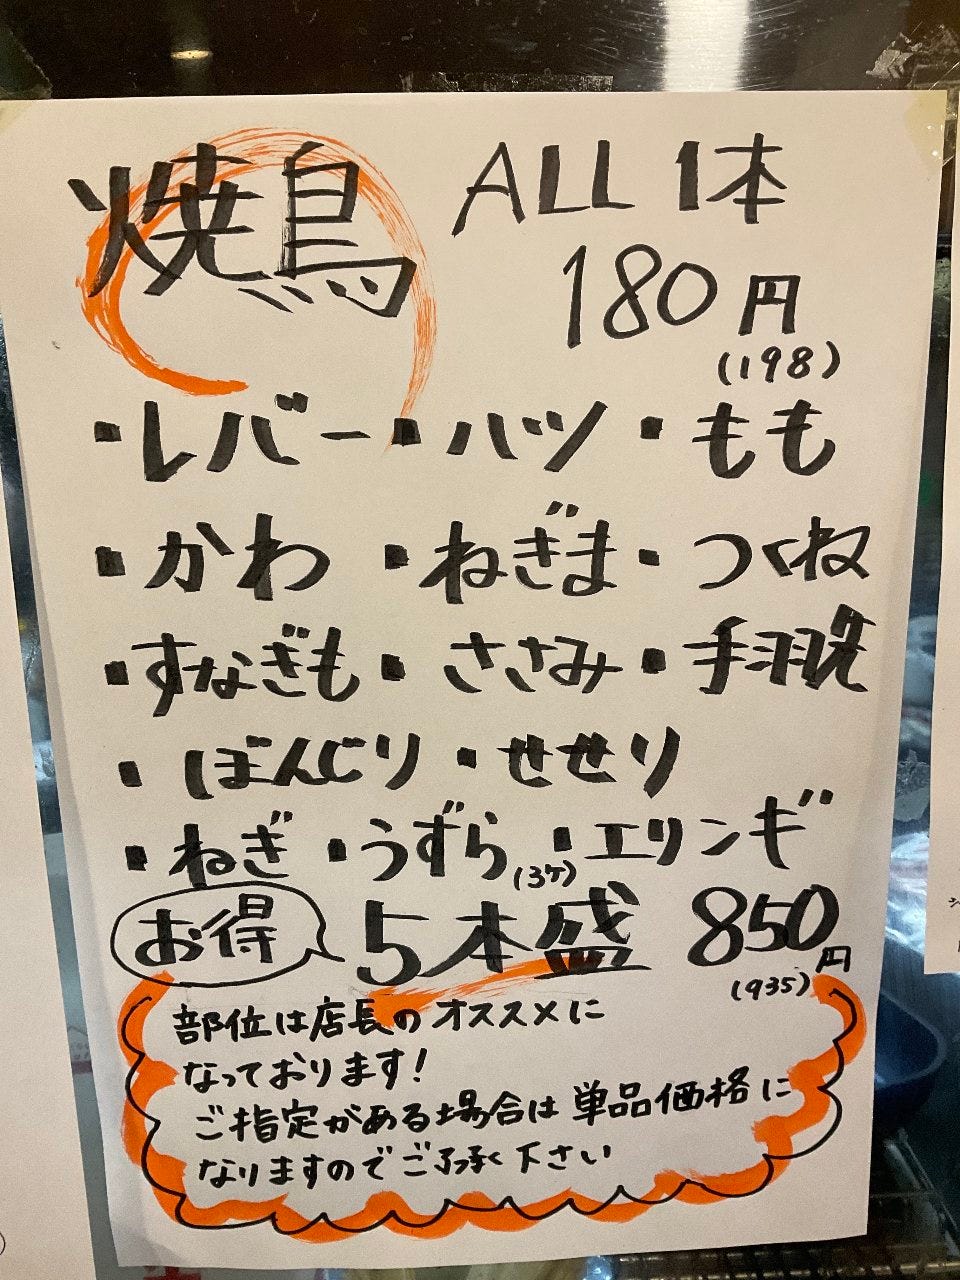 焼鳥 ALL 1本
180円
(198)
・レバー・ハツ・もも
・かわ・ねぎま・つくね
・すなぎも・ささみ・手羽先
・ぼんじり・せせり
・ねぎ・うずら(3ケ)・エリンギ
お得 5本盛 850円
(935)
部位は店長のオススメに
なっております!
ご指定がある場合は単品価格に
なりますのでご了承下さい